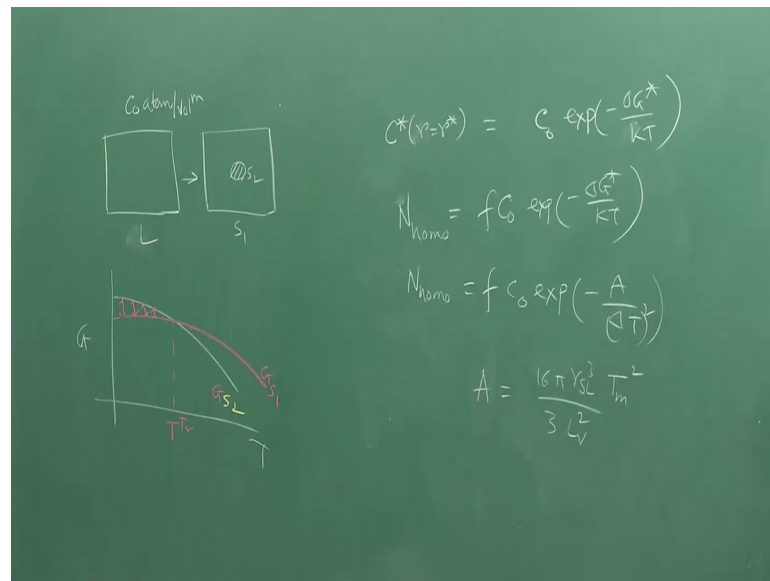 C₀ atom/volᵐ
S₂
L
S₁
G
G S₂
G S₁
T
C*(r=r*) = C₀ exp(-ΔG*/kT)
N_homo = f C₀ exp(-ΔG*/kT)
N_homo = f C₀ exp(-A/(ΔT)²)
A = 16 π γ_SL³ / 3 L_v² T_m²